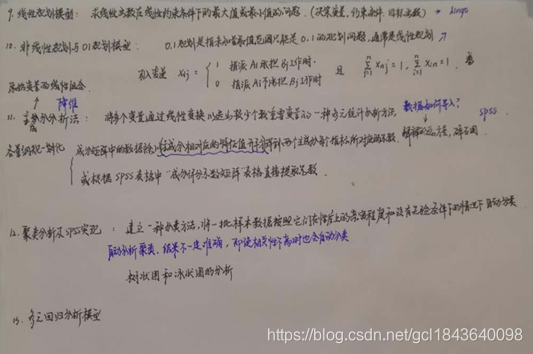 9. 线性规划模型： 求线性函数在线性约束条件下的最大值或最小值的问题．(决策变量，约束条件，目标函数) * lingo
10. 非线性规划与01规划模型． 0.1规划是指未知量取值范围只能是 0.1 的规划问题，通常是线性规划 ↗
引入变量 Xij = { 1 指派 Ai 承担 Bj 工作时． 0 指派 Ai 不承担 Bj 工作时 且
原始变量的线性组合
↑ 降维
11. 主成分分析法： 将多个变量通过线性变换以选出少数个数重要变量的一种多元统计分析方法 数据如何导入？ SPSS
成分矩阵中的数据除以主成分相对应的特征值开平方得到两个主成分每个指标所对应的系数．
或根据 SPSS 表格中 "成分得分系数矩阵" 表格直接提取系数
12. 聚类分析及SPSS实现： 建立一种分类方法，将一批样本数据按照它们在性质上的亲密程度和没有先验条件下的情况下自动分类
自动分析聚类，结果不一定准确，即使相关性不高时也会自动分类
树状图和冰状图的分析
13. 多元回归分析模型
https://blog.csdn.net/gcl1843640098